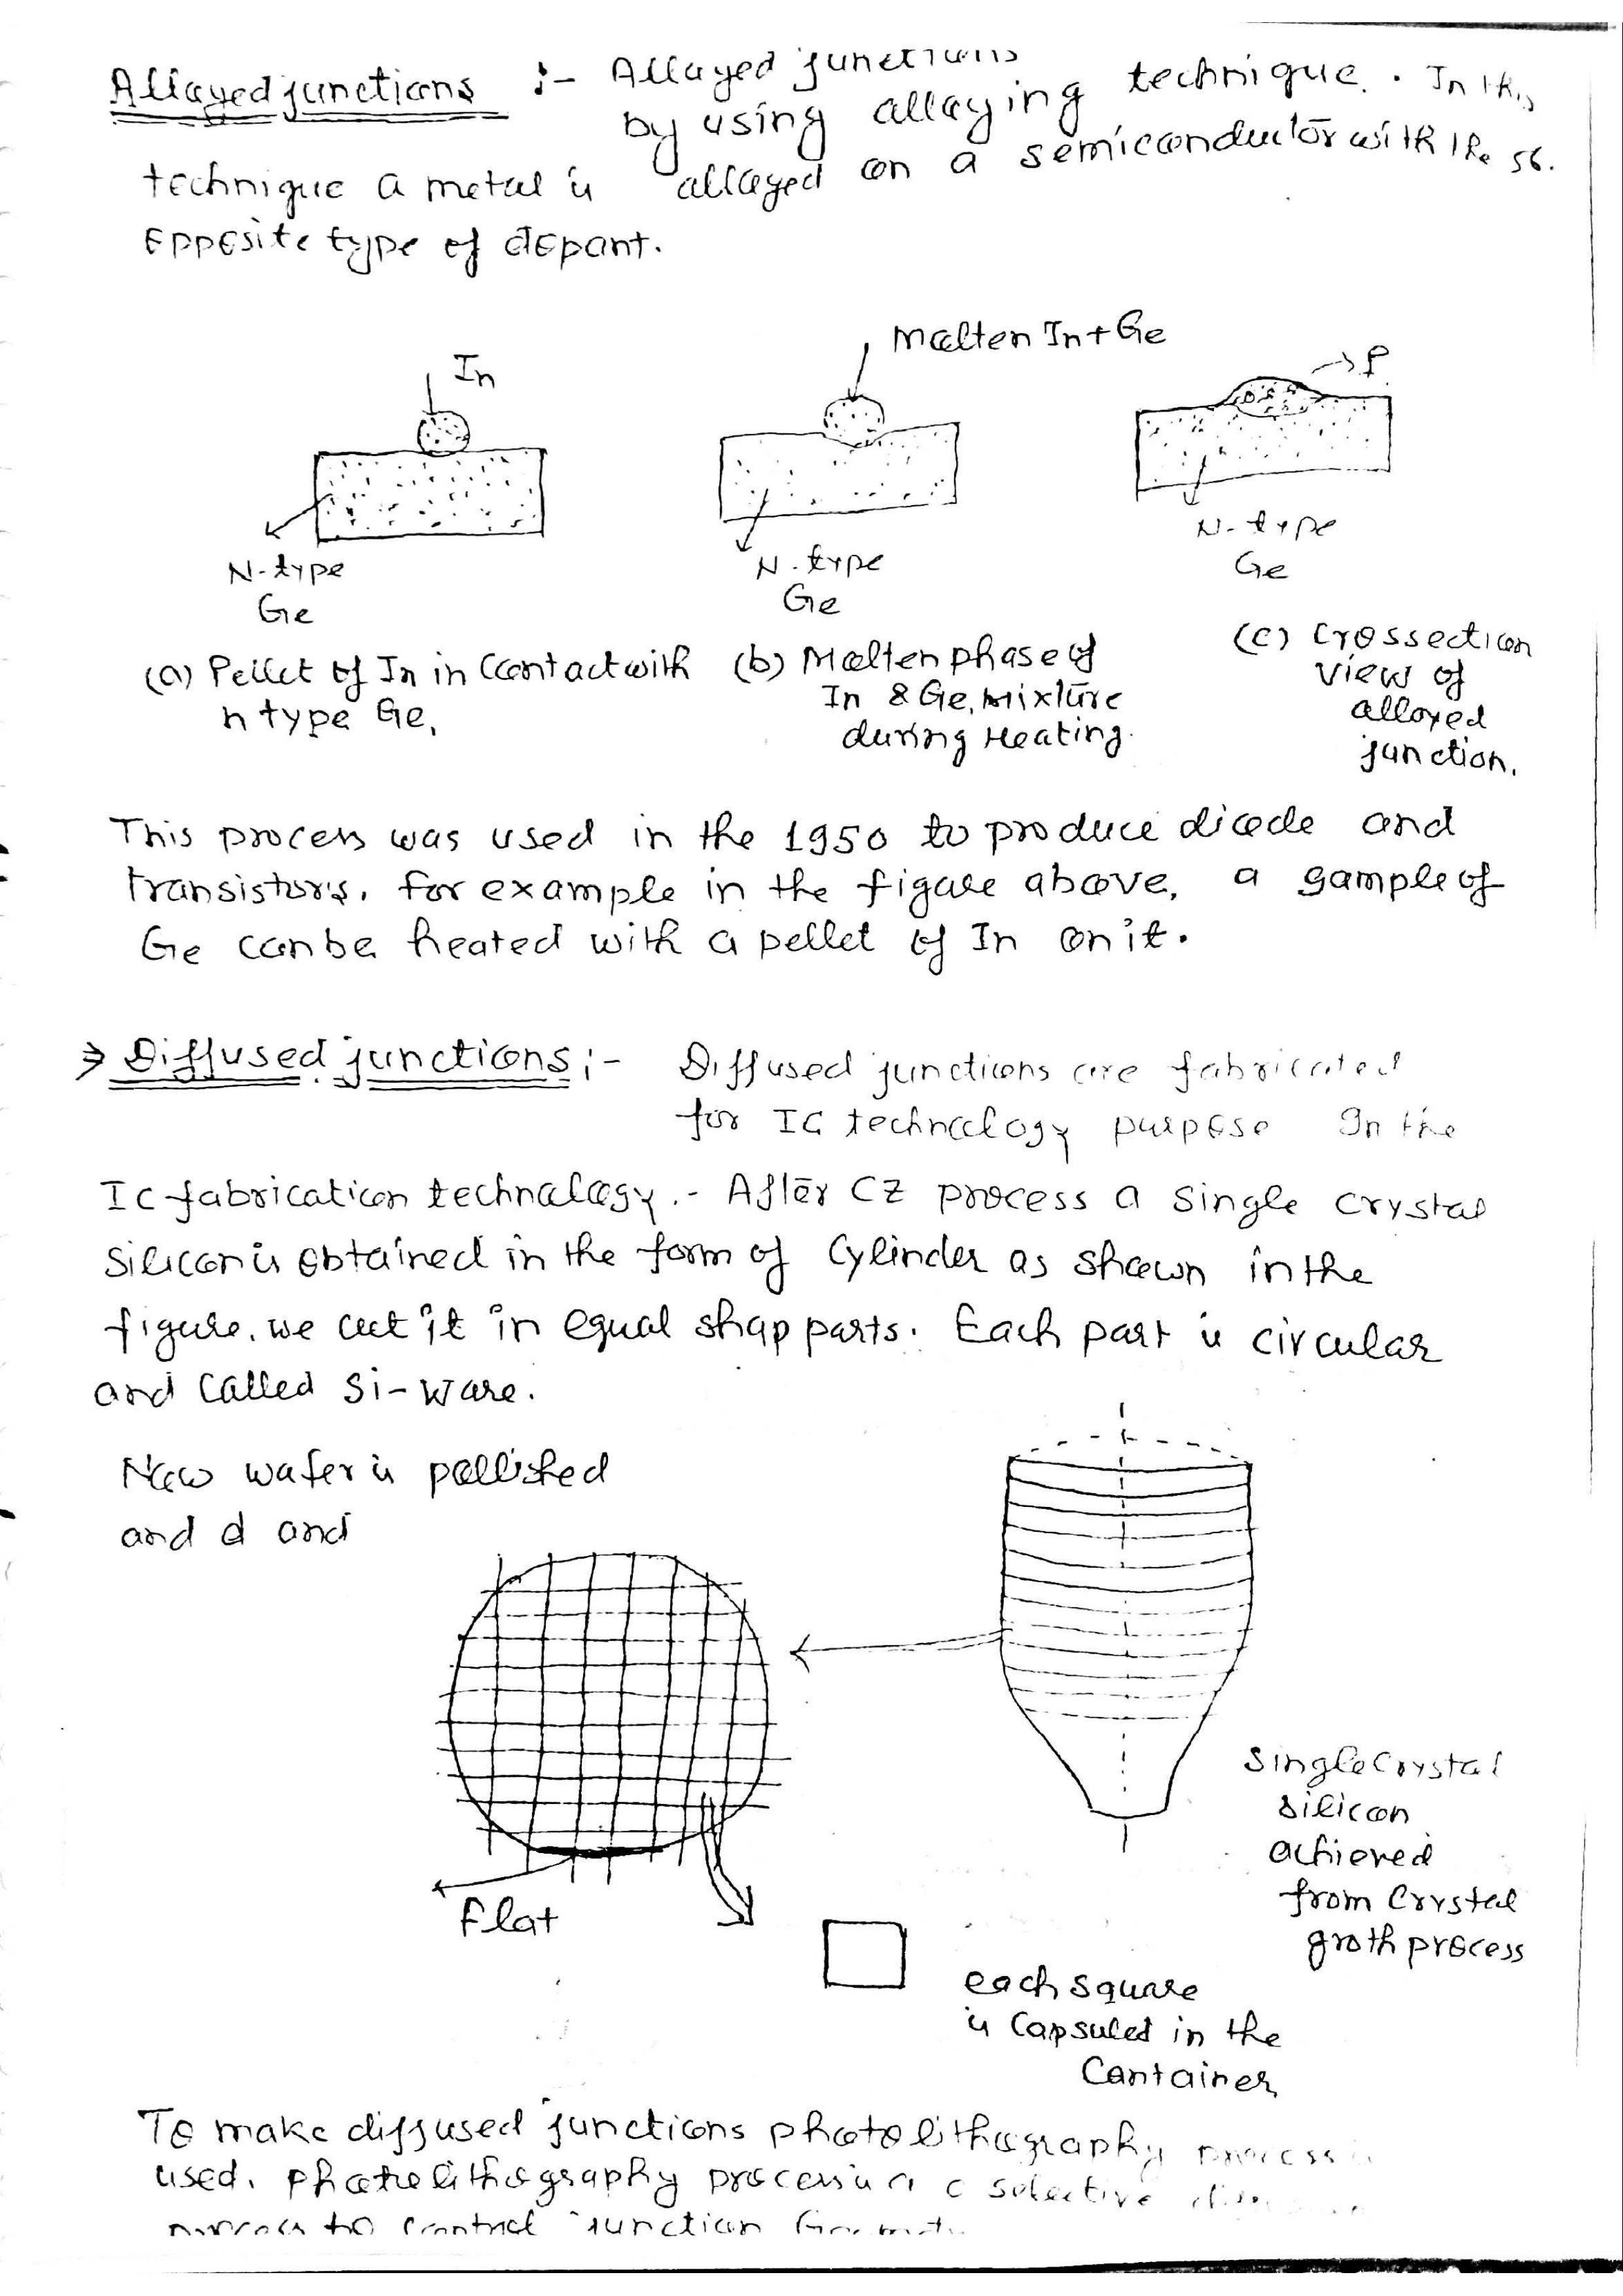 Alloyed junctions :- Alloyed junctions
by using alloying technique. In this
technique a metal is alloyed on a semiconductor with the
opposite type of dopant.
In
Molten In + Ge
P
N-type
Ge
N-type
Ge
N-type
Ge
(a) Pellet of In in Contact with
n type Ge,
(b) Molten phase of
In & Ge, Mixture
during Heating.
(c) Crossection
view of
alloyed
junction.
This process was used in the 1950 to produce diode and
transistors, for example in the figure above, a sample of
Ge can be heated with a pellet of In on it.
⇒ Diffused junctions :- Diffused junctions are fabricated
for IC technology purpose In the
IC fabrication technology.- After CZ process a single crystal
silicon is obtained in the form of cylinder as shown in the
figure. we cut it in equal shap parts. Each part is circular
and called Si-ware.
Now wafer is pollished
and d and
Flat
Single Crystal
silicon
achieved
from Crystal
groth process
each square
is Capsuled in the
Container
To make diffused junctions photolithography process
used. photolithography process is a selective
process to control junction